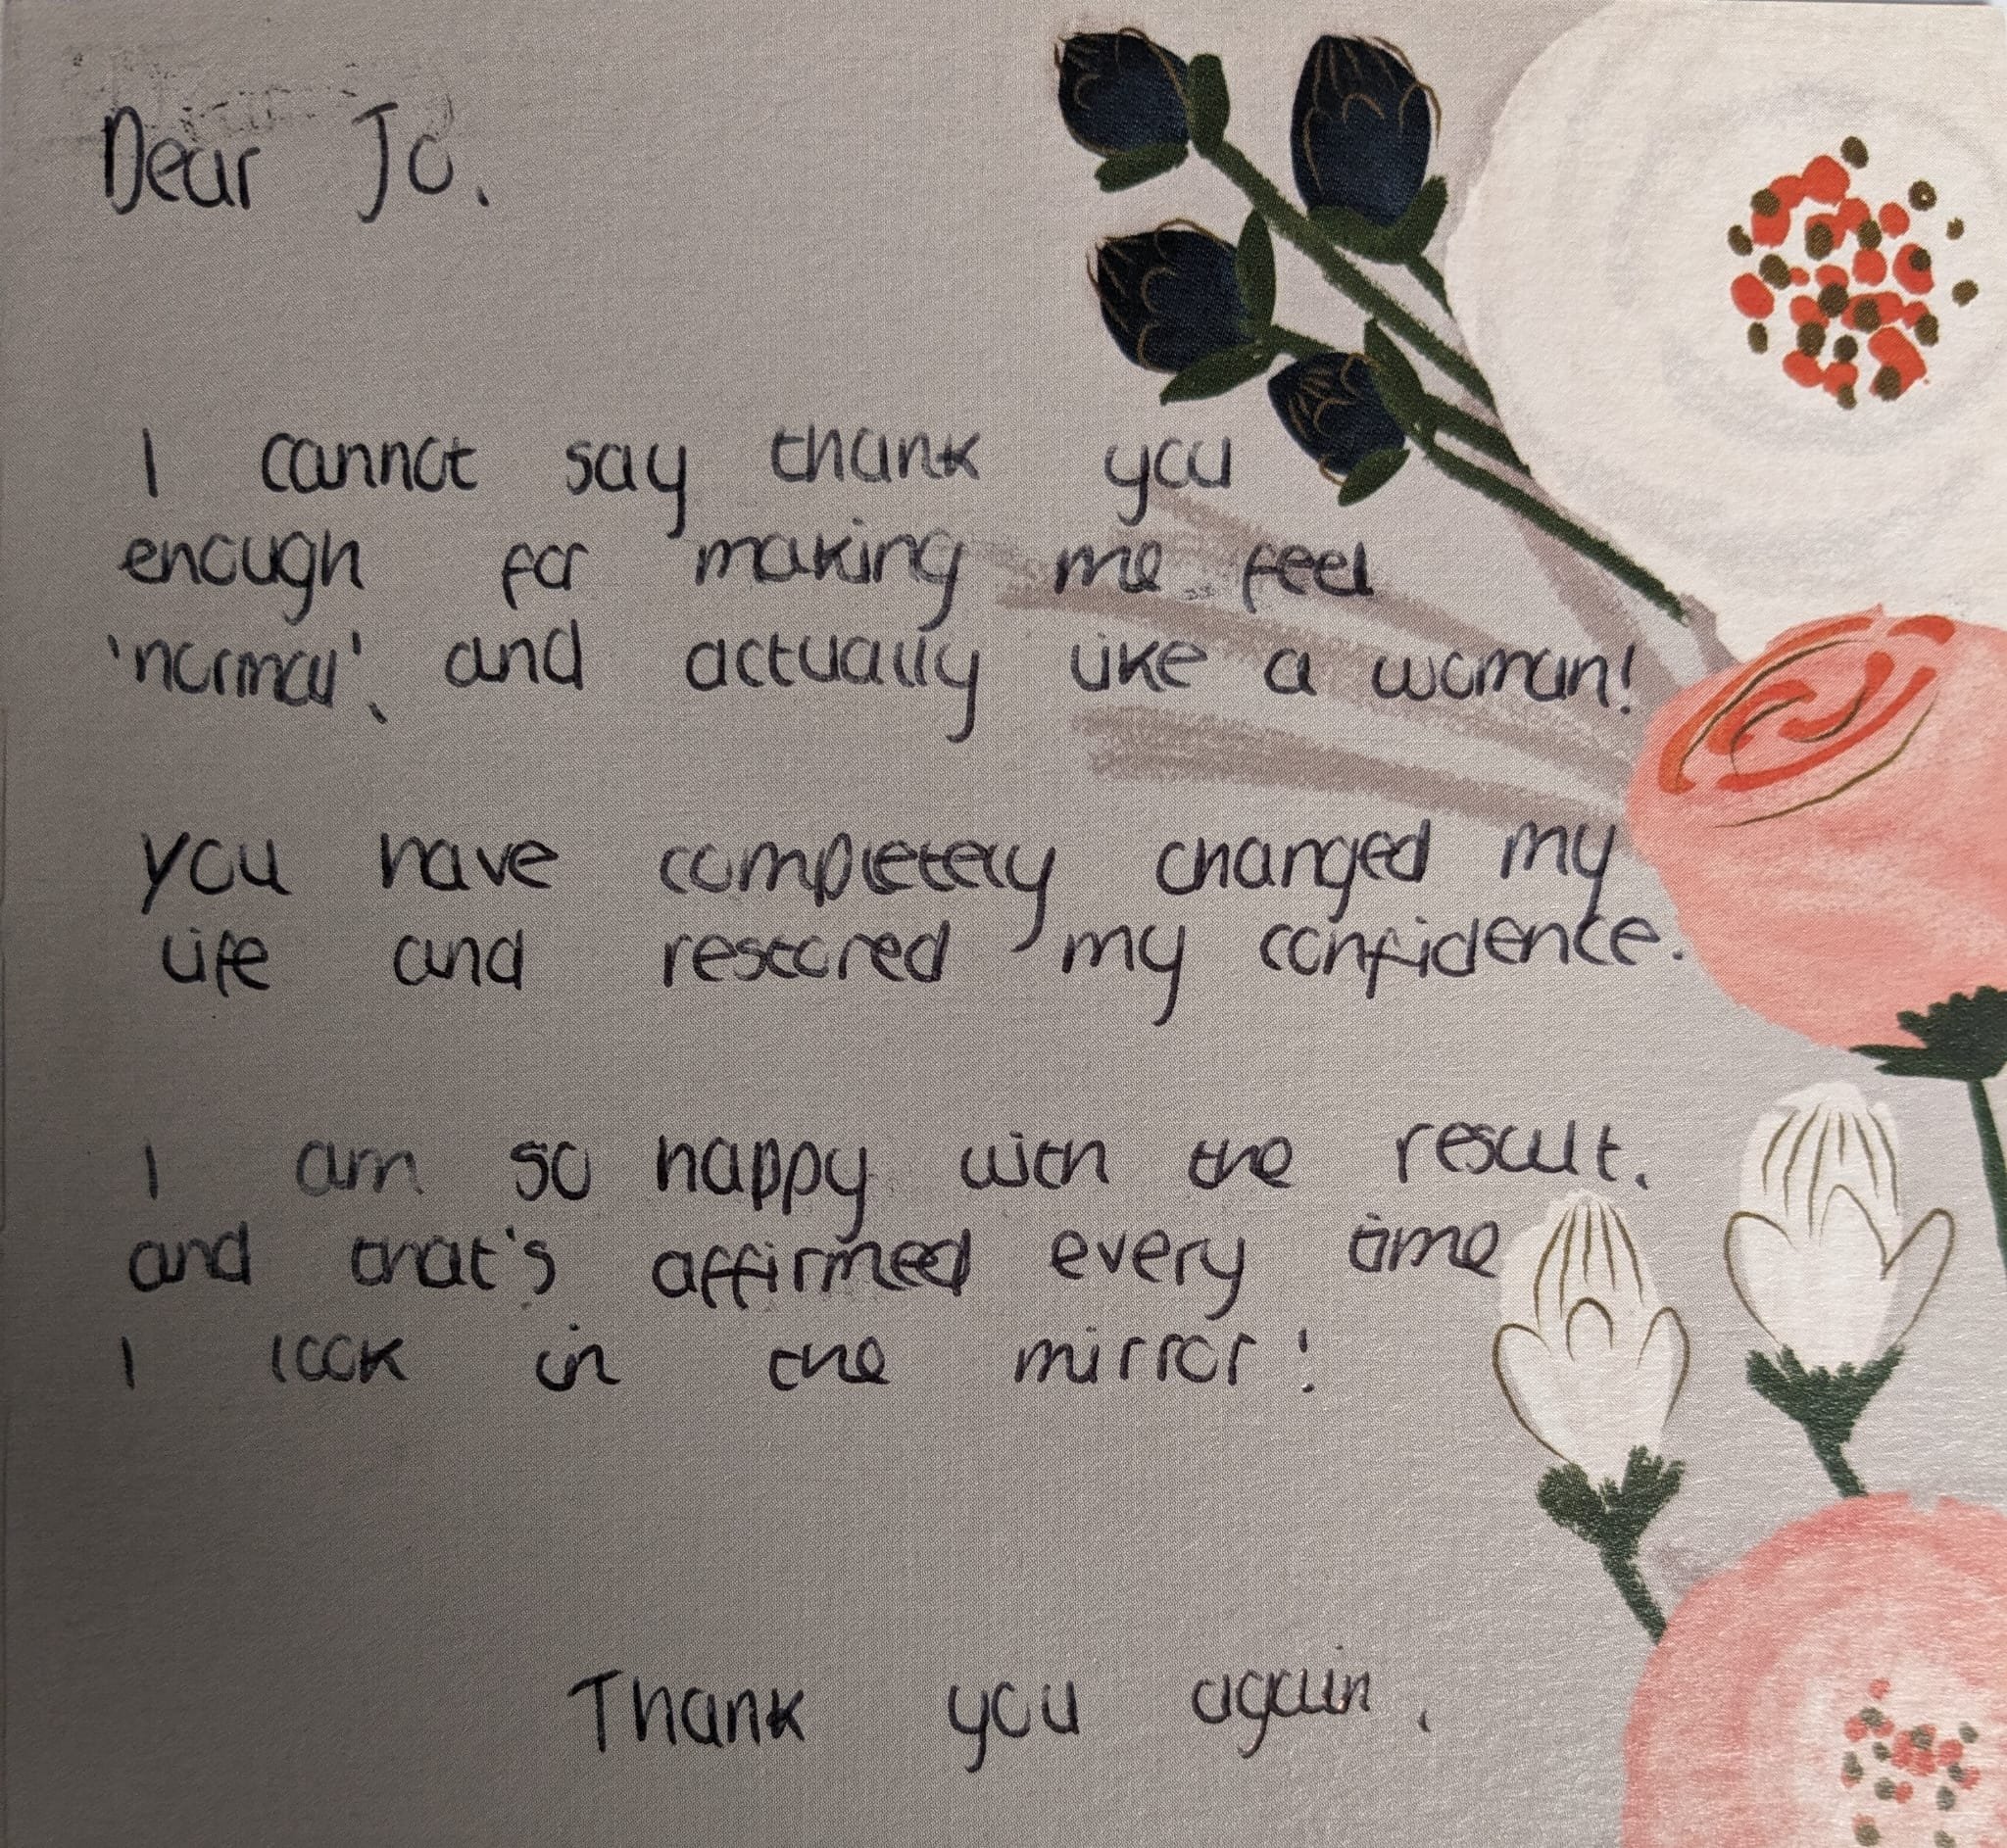 Dear Jo,
I cannot say thank you
enough for making me feel
'normal', and actually like a woman!
you have completely changed my
life and restored my confidence.
I am so happy with the result,
and that's affirmed every time
I look in the mirror!
Thank you again,